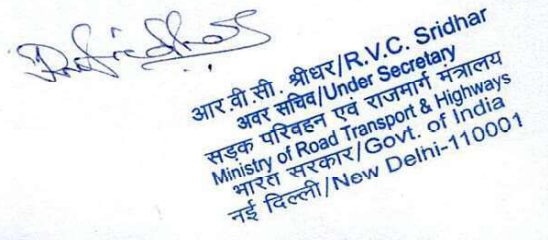 आर.वी.सी. श्रीधर/R.V.C. Sridhar
अवर सचिव/Under Secretary
सड़क परिवहन एवं राजमार्ग मंत्रालय
Ministry of Road Transport & Highways
भारत सरकार/Govt. of India
नई दिल्ली/New Delhi-110001